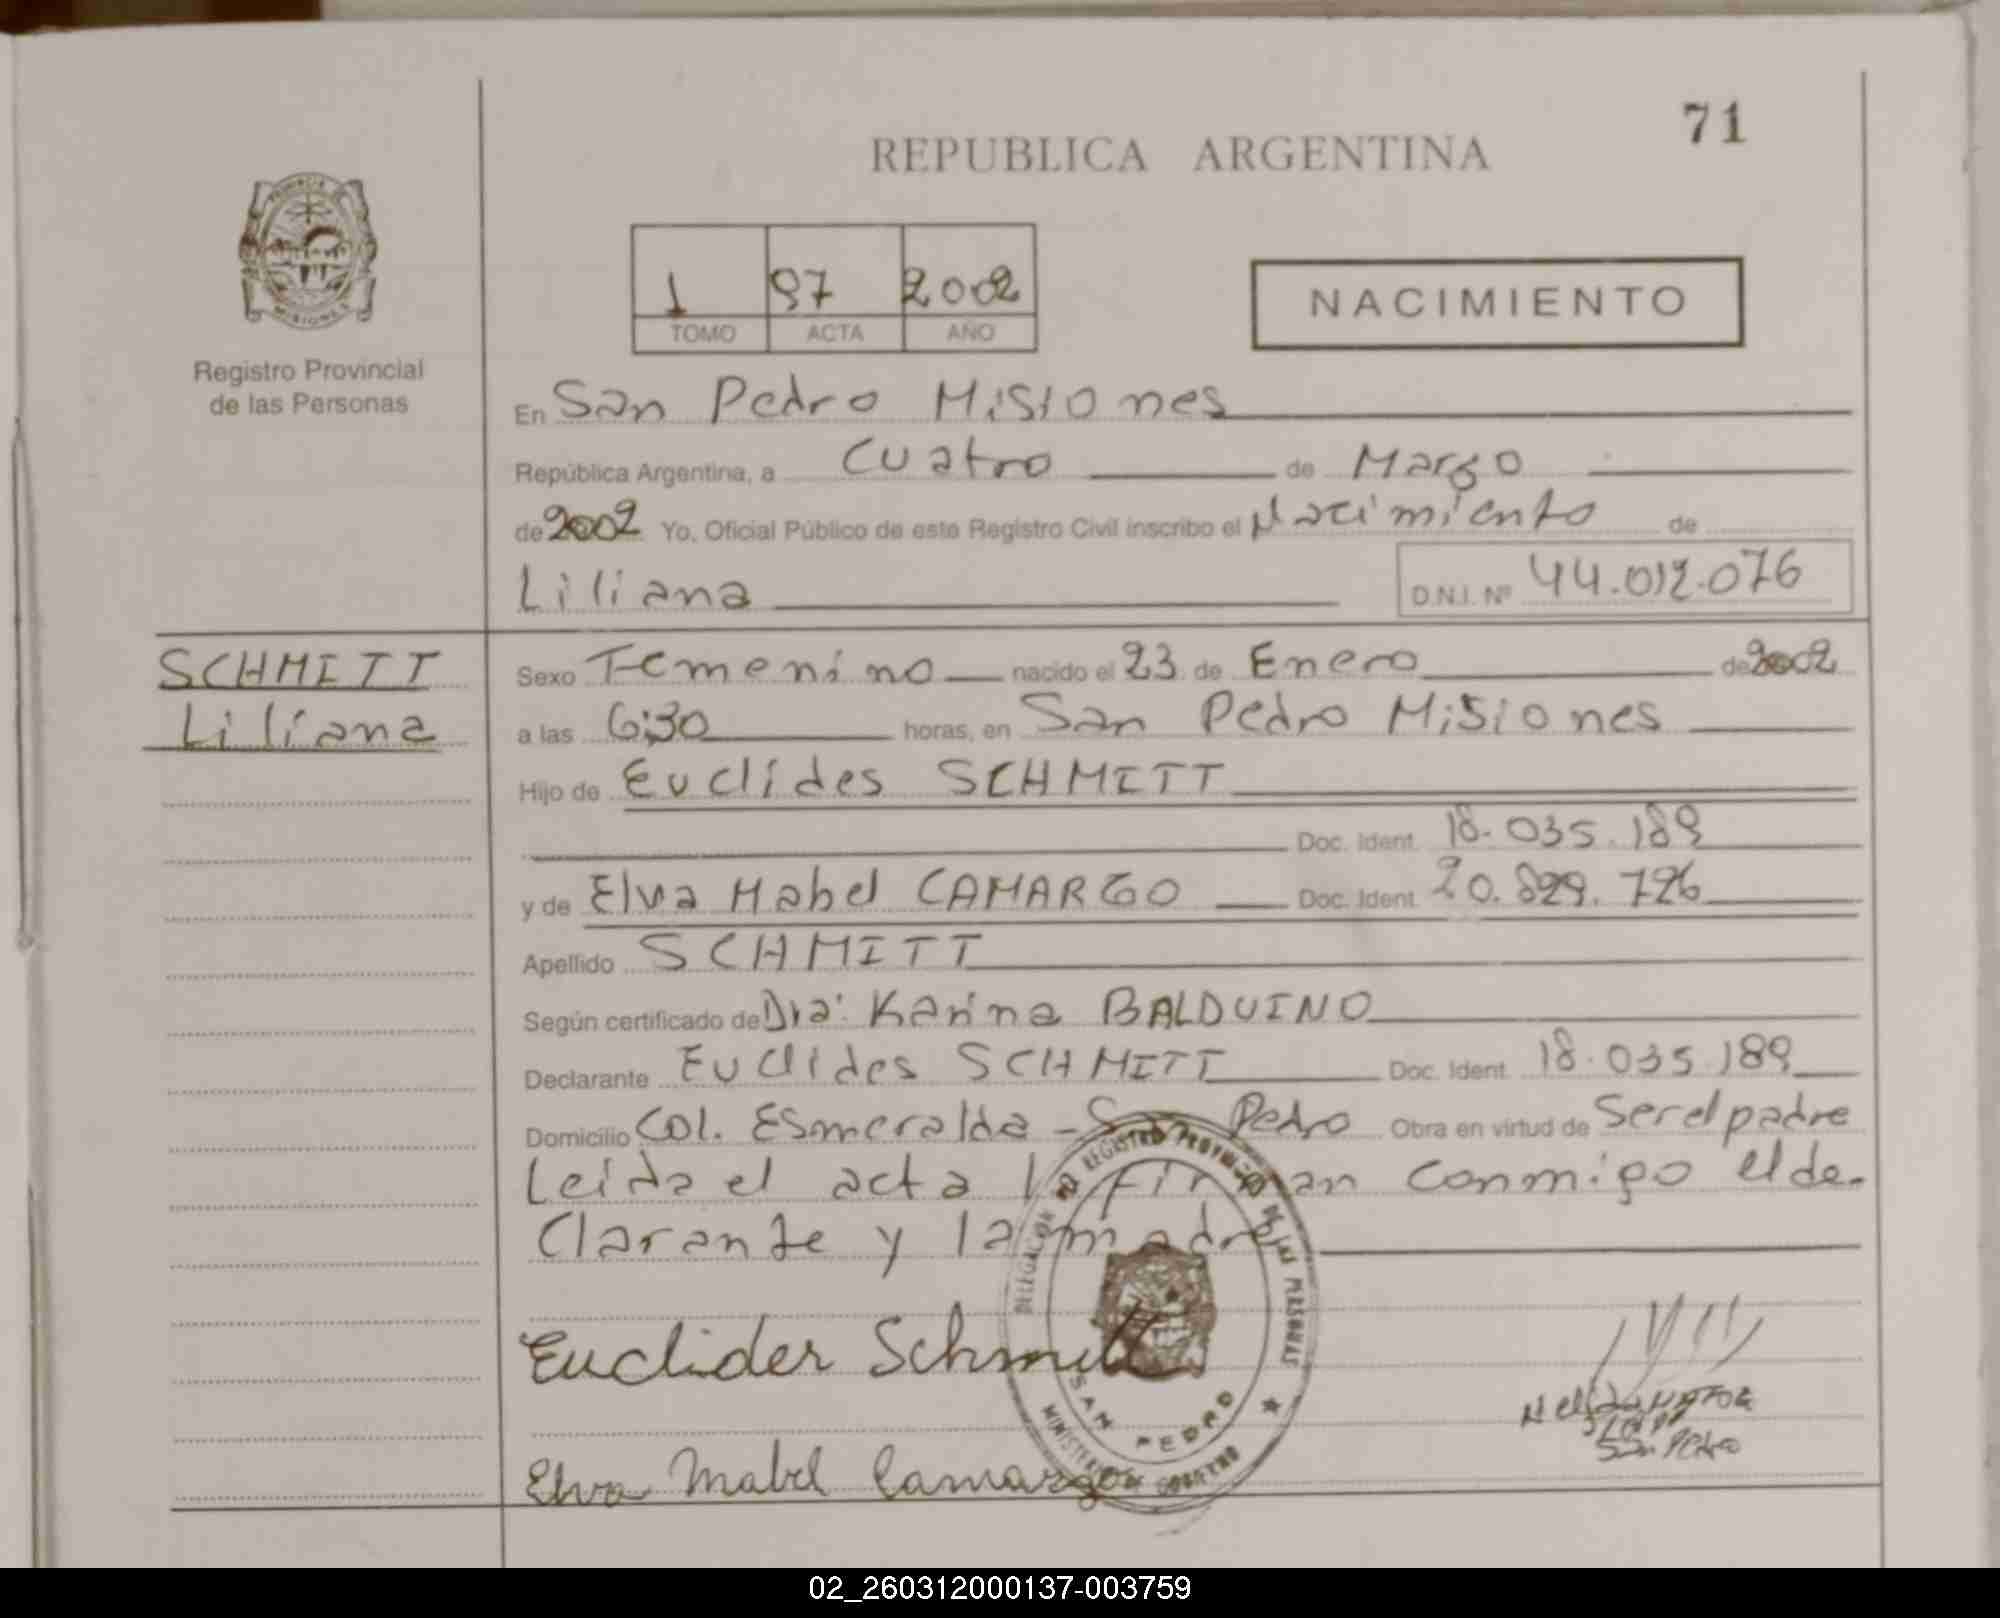 71
REPUBLICA ARGENTINA
PROVINCIA
MISIONES
Registro Provincial
de las Personas
1 97 2002
TOMO ACTA AÑO
NACIMIENTO
En San Pedro Misiones
República Argentina, a Cuatro de Marzo
de 2002 Yo, Oficial Público de este Registro Civil inscribo el Nacimiento de
Liliana D.N.I. Nº 44.012.076
SCHMITT
Liliana
Sexo Femenino nacido el 23 de Enero de 2002
a las 6:30 horas, en San Pedro Misiones
Hijo de Euclides SCHMITT
Doc. Ident. 18.035.189
y de Elva Mabel CAMARGO Doc. Ident. 20.829.726
Apellido SCHMITT
Según certificado de Dra: Karina BALDUINO
Declarante Euclides SCHMITT Doc. Ident. 18.035.189
Domicilio Col. Esmeralda - San Pedro Obra en virtud de Ser el padre
Leida el acta la firman conmigo el de-
clarante y la madre
DELEGACION REGISTRO PROVINCIAL DE LAS PERSONAS
SAN PEDRO
MINISTERIO DE GOBIERNO
Euclider Schmitt
Elva Mabel Camargo
San Pedro
02_260312000137-003759